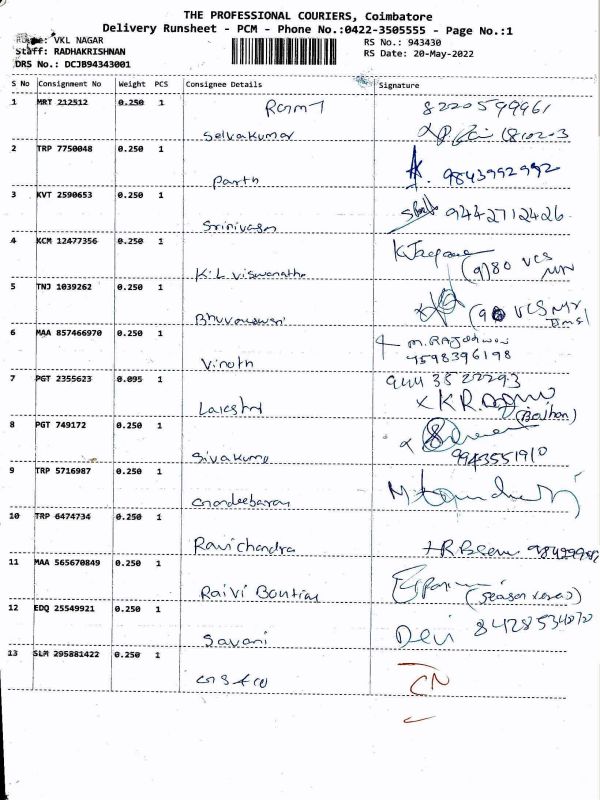 THE PROFESSIONAL COURIERS, Coimbatore
Delivery Runsheet - PCM - Phone No.:0422-3505555 - Page No.:1
VKL NAGAR
Staff: RADHAKRISHNAN
DRS No.: DCJB94343001
RS No.: 943430
RS Date: 20-May-2022
S No Consignment No Weight PCS Consignee Details Signature
1 MRT 212512 0.250 1 8220599961
Selvakumar
2 TRP 7750048 0.250 1
Parth 9843992992
3 KVT 2590653 0.250 1
Srinivasan 9442712426
4 KCM 12477356 0.250 1
K.L Viswanatha (9)80 VCS
5 TNJ 1039262 0.250 1
Bhuvaneswari VCS
6 MAA 857466970 0.250 1 M.RAJ
Vinoth 4598396198
7 PGT 2355623 0.095 1 944 35 22293
Lakshmi
8 PGT 749172 0.250 1
Sivakumar 9943551910
9 TRP 5716987 0.250 1
10 TRP 6474734 0.250 1
Ravichandra
11 MAA 565670849 0.250 1
12 EDQ 25549921 0.250 1
Savani Devi
13 SLM 295881422 0.250 1
CN